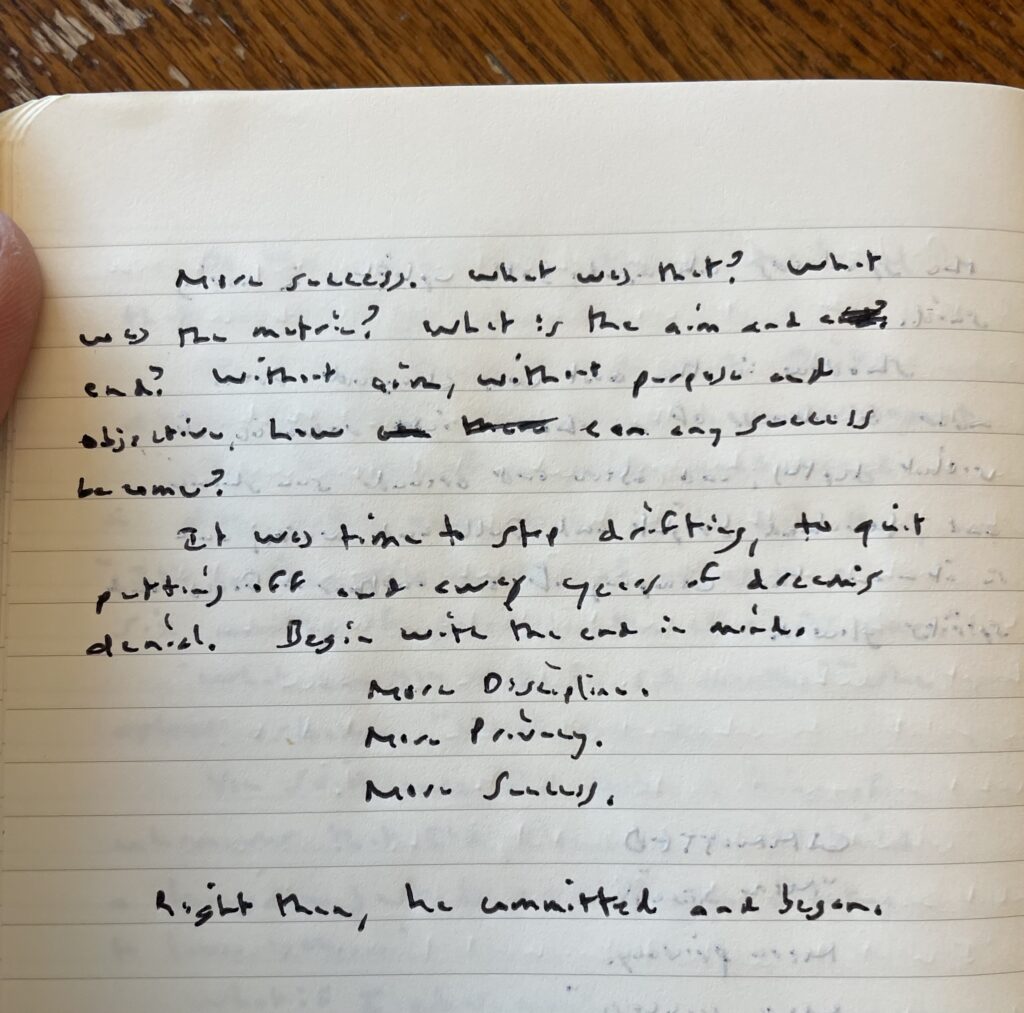 More success. What was that? What
was the metric? What is the aim and
end? Without aim, without purpose and
objective, how can any success
become?
It was time to stop drifting, to quit
putting off and away years of dreaming
denial. Begin with the end in mind.
More Discipline.
More Privacy.
More Success.
Right then, he committed and began.